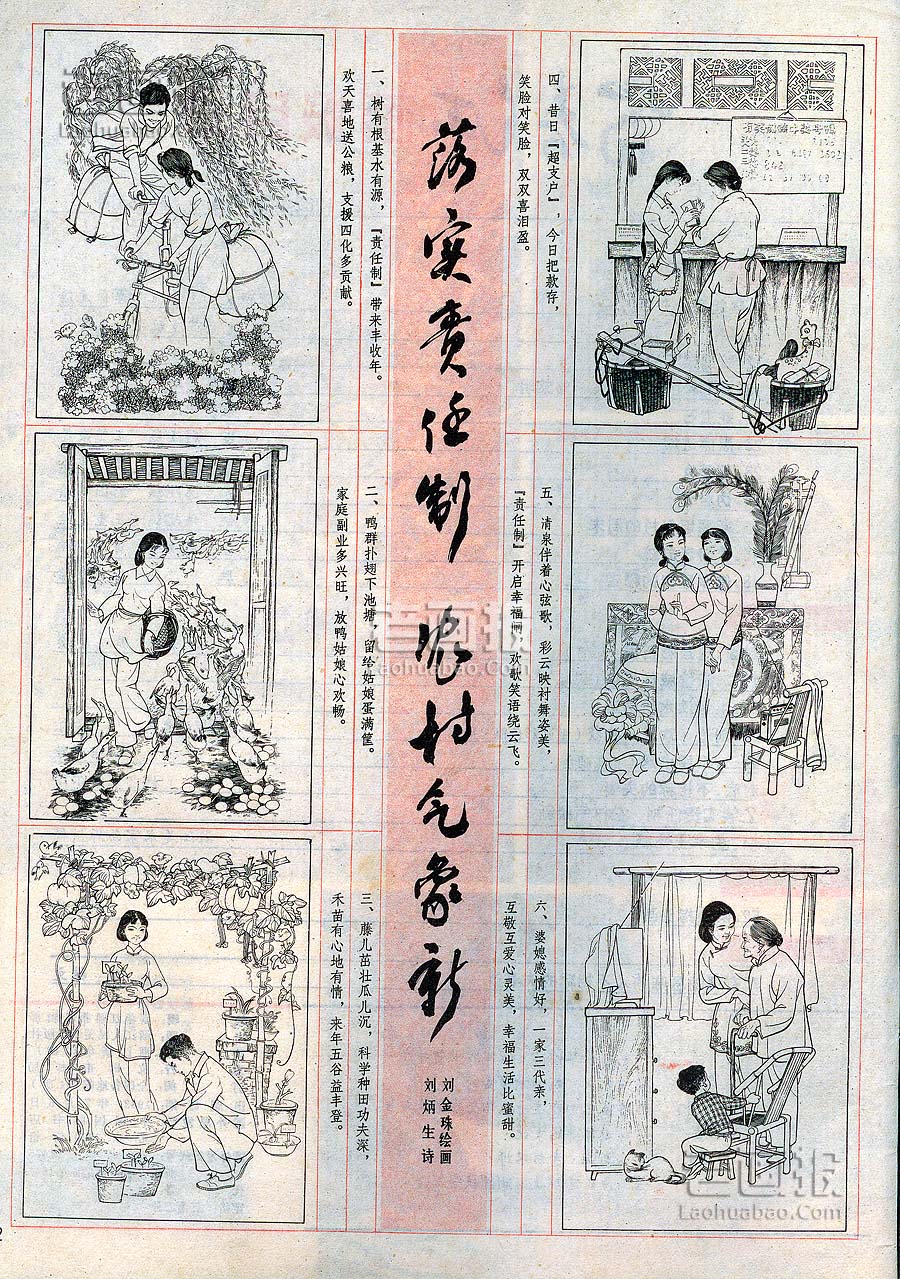 落实责任制 农村气象新
刘金珠绘画
刘炳生诗
一、树有根基水有源，『责任制』带来丰收年。
欢天喜地送公粮，支援四化多贡献。
二、鸭群扑翅下池塘，留给姑娘蛋满筐。
家庭副业多兴旺，放鸭姑娘心欢畅。
三、藤儿茁壮瓜儿沉，科学种田功夫深，
禾苗有心地有情，来年五谷益丰登。
四、昔日『超支户』，今日把款存，
笑脸对笑脸，双双喜泪盈。
五、清泉伴着心弦歌，彩云映衬舞姿美，
『责任制』开启幸福闸，欢歌笑语绕云飞。
六、婆媳感情好，一家三代亲，
互敬互爱心灵美，幸福生活比蜜甜。
老画报
Laohuabao.Com
老画报
Laohuabao.Com